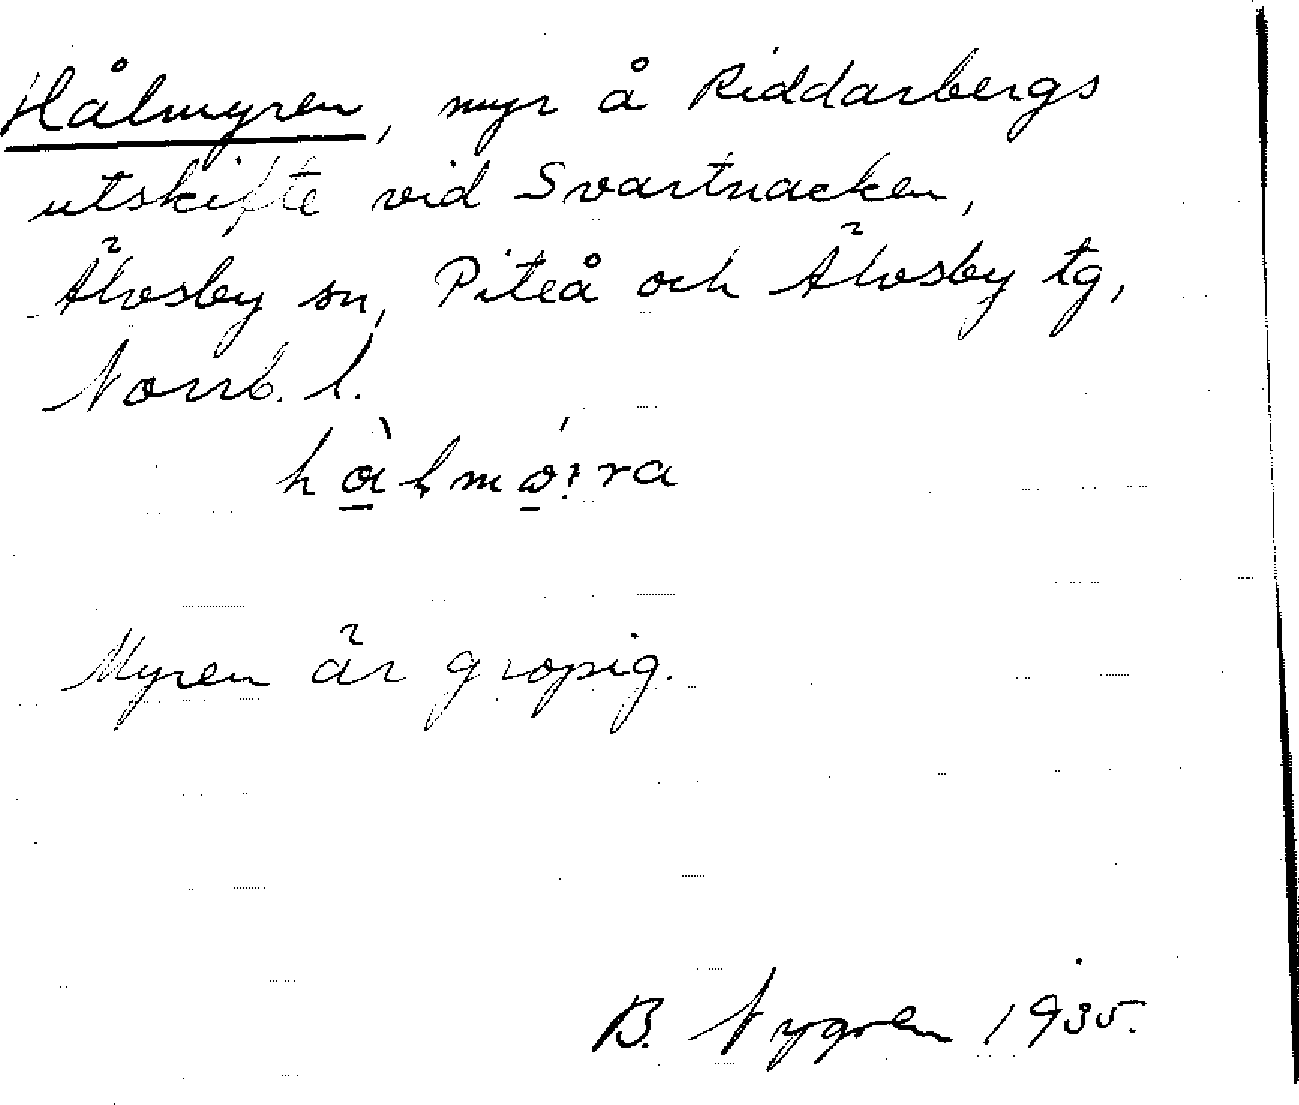 Hålmyren, myr å Riddarbergs
utskifte vid Svartnacken,
Älvsby sn, Piteå och Älvsby tg,
Norrb. l.
Myren är gropig.
B. Nygren 1935.